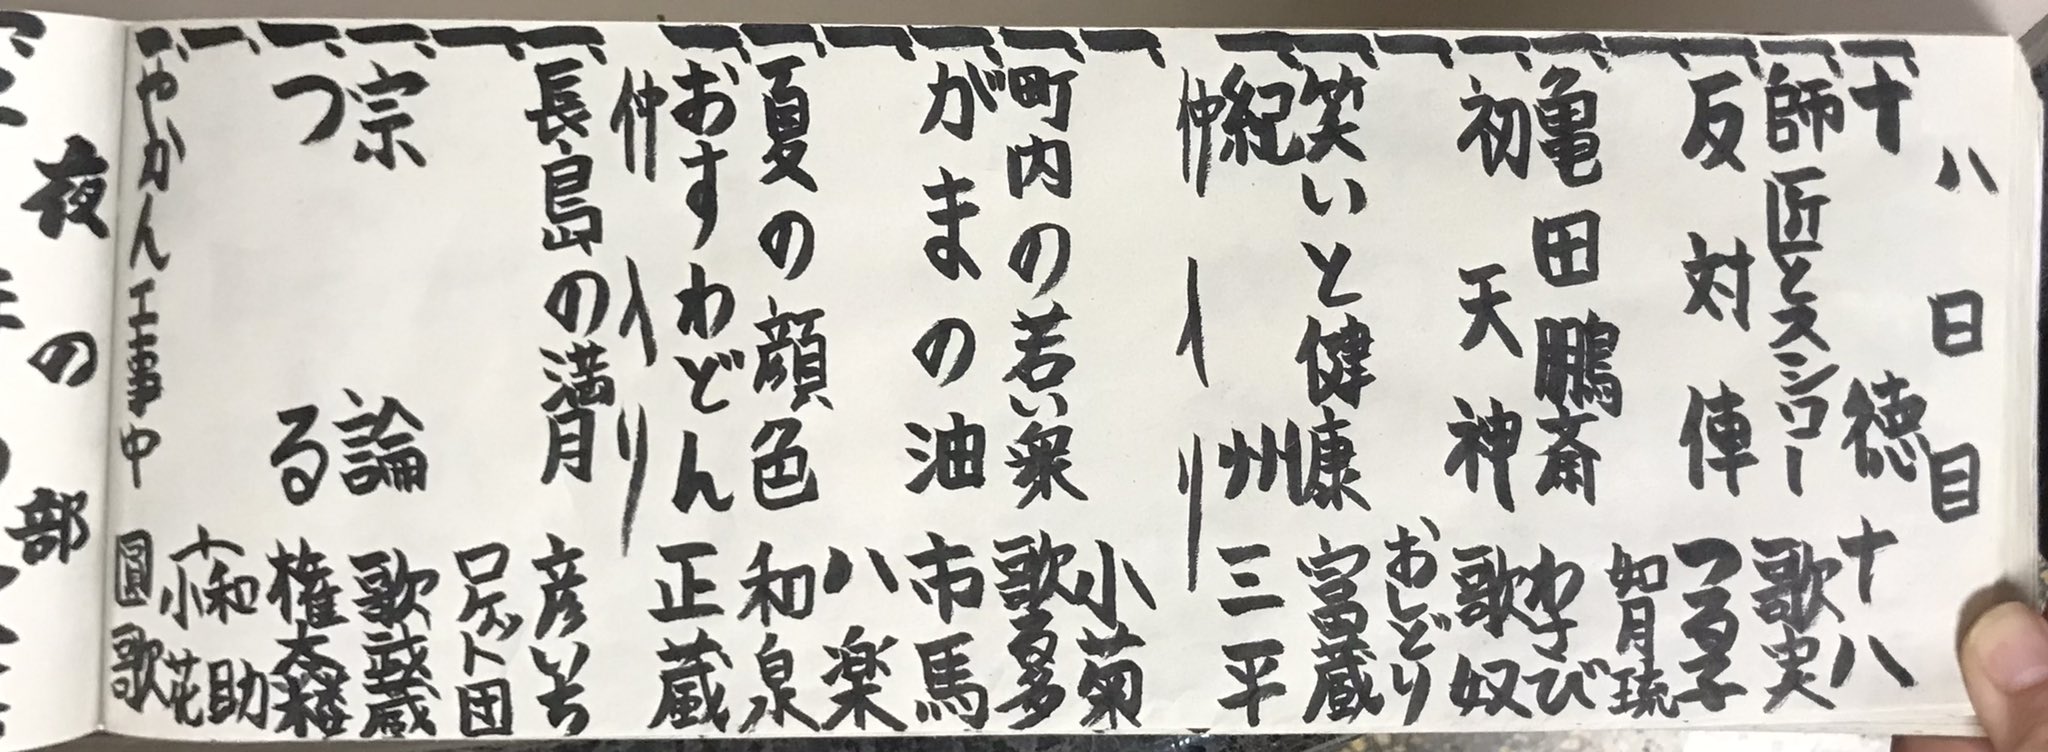 八日目
一、十徳 十八
一、師匠とスシロー 歌実
一、反対俥 つる子
一、如月琉
一、亀田鵬斎 わさび
一、初天神 歌奴
一、おしどり
一、笑いと健康 富蔵
一、紀州 三平
仲入り
一、小菊
一、町内の若い衆 歌る多
一、がまの油 市馬
一、八楽
一、夏の顔色 和泉
一、おすわどん 正蔵
仲入り
一、長島の満月 彦いち
一、ロケット団
一、宗論 歌武蔵
一、つる 権太楼
一、和助 小花
一、やかん工事中 圓歌
夜の部